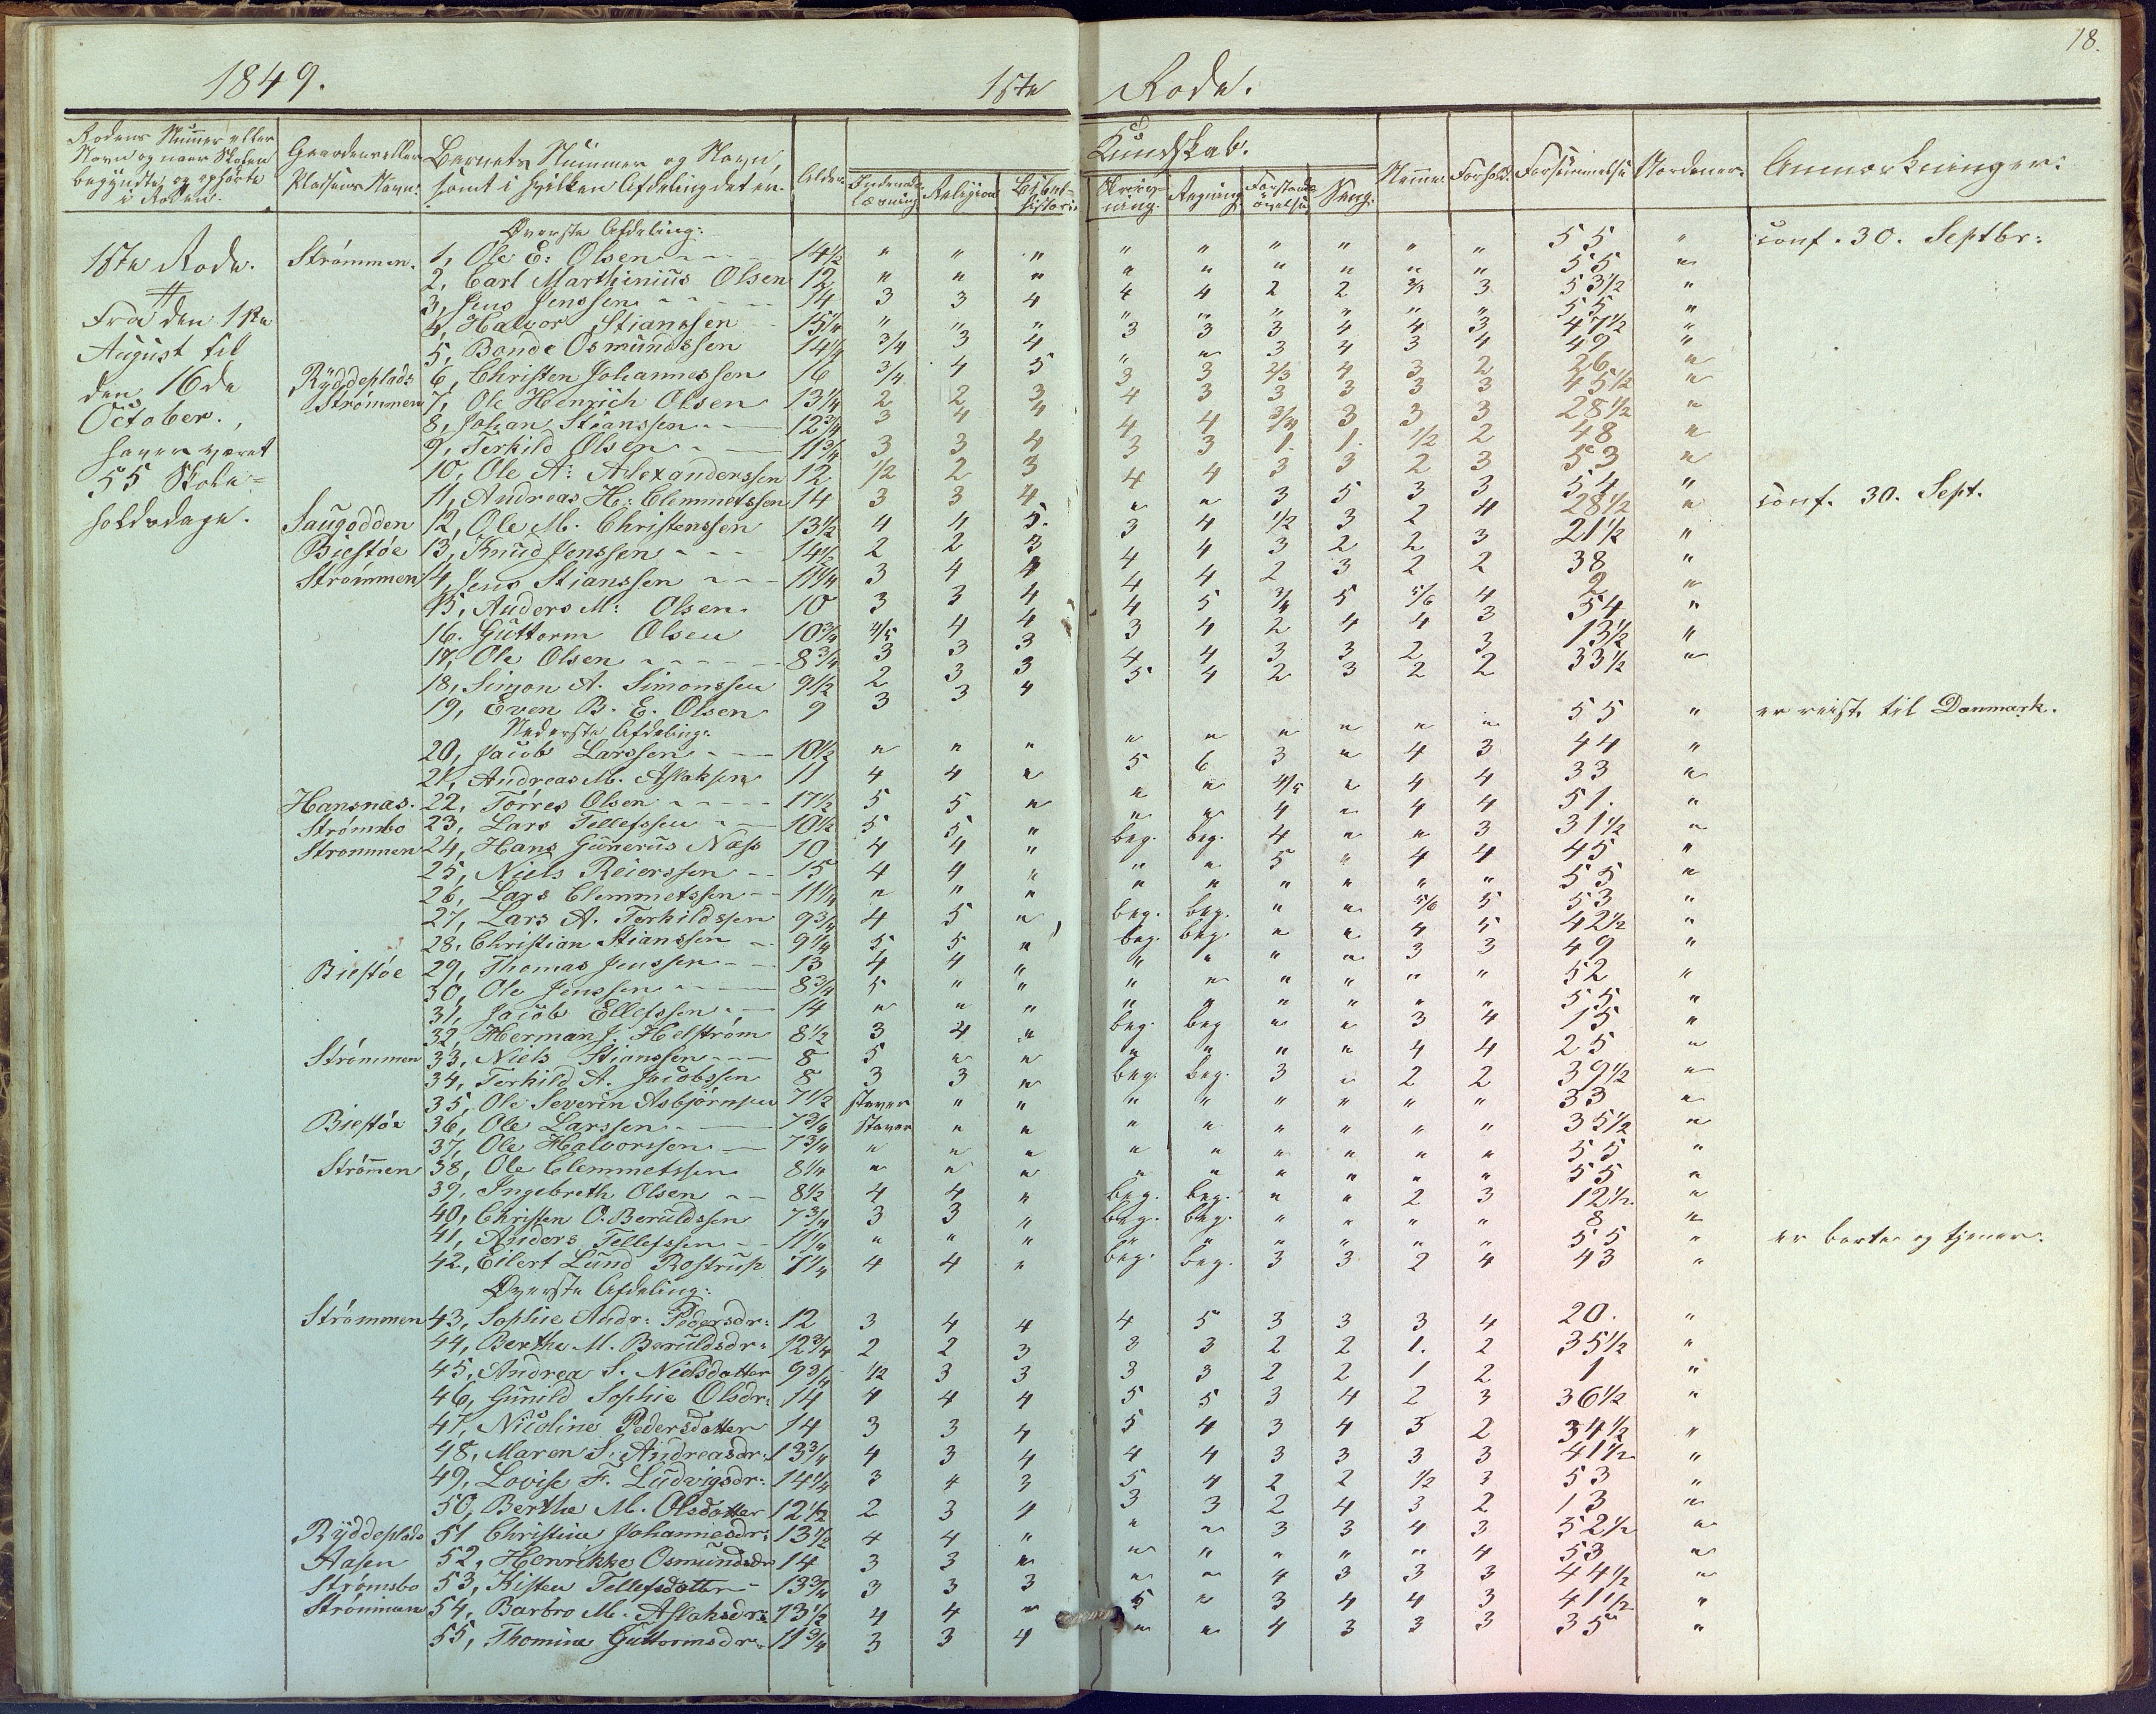 18.
1849. 1ste Rode.
Rodens Nummer eller Navn og naar Skolen begyndte og ophörte i Roden.
Gaardens eller Pladsens Navn.
Barnets Nummer og Navn, samt i hvilken Afdeling det er.
Alder.
Kundskab.
Indenads Læsning. Religion. Bibelhistorie. Skrivning. Regning. Forstandsøvelse. Sang.
Nemme. Forhold. Forsömmelse Anmærkninger.
Øverste Afdeling:
1ste Rode. Strømmen. 1, Ole E. Olsen 14½ " " " " " " " " " 55 " conf. 30. Septbr:
2, Carl Marthinius Olsen 12 " " " " " " " " " 55 "
3, Jens Jenssen 14 3 3 4 4 4 2 2 2/3 3 53½ "
Fra den 1ste 4, Halvor Stianssen 15¼ " " " " " " " " " 55 "
August til 5, Bonde Osmundssen 14¼ 3/4 3 4 3 3 3 4 4 3 47½ "
den 16de Ryddeplads 6, Christen Johannessen 16 3/4 4 5 " " 3 4 3 4 49 "
October., Strømmen 7, Ole Henrich Olsen 13¼ 2 2 3 3 3 2/3 4 3 2 26 "
8, Johan Stianssen 12¾ 3 4 4 4 3 3 3 3 3 45½ "
haver været 9, Terkild Olsen 11¾ 3 3 4 4 4 3/4 3 3 3 28½ "
55 Skole= 10, Ole A: Alexanderssen 12 1/2 2 3 3 3 1. 1. 1/2 2 48 "
11, Andreas H: Clemmetssen 14 3 3 4 4 4 3 3 2 3 53 "
holdsdage. Saugodden 12, Ole M. Christenssen 13½ 4 4 5. " " 3 5 3 3 54 "
Biestøe 13, Knud Jenssen 14½ 2 2 3 3 4 1/2 3 2 4 28½ " conf. 30. Sept.
Strømmen 14, Jens Stianssen 11¼ 3 4 4 4 4 3 2 2 3 21½ "
15, Anders M: Olsen. 10 3 3 4 4 4 2 3 2 2 38 "
16. Guttorm Olsen 10¾ 4/5 4 4 4 5 3/4 5 5/6 4 2 "
17, Ole Olsen 8¾ 3 3 3 3 4 2 4 4 3 54 "
18, Simon A. Simonssen 9½ 2 3 3 4 4 3 3 2 3 13½ "
19, Even B. E. Olsen 9 3 3 4 5 4 2 3 2 2 33½ "
Nederste Afdeling:
20, Jacob Larssen 10½ " " " " " " " " " 55 " er reist til Danmark.
21, Andreas M. Aslaksen 11 4 4 " 5 6 3 " 4 3 44 "
Hansnæs. 22, Tørres Olsen 17½ 5 5 " " " 4/5 " 4 4 33 "
Strømsbo 23, Lars Tellefssen 10½ 5 5 " " " 4 " 4 4 51. "
Strømmen 24, Hans Gunerus Næss 10 4 4 " beg. beg. 4 " " 3 31½ "
25, Niels Reierssen 15 4 4 " " " 5 " 4 4 45 "
26, Lars Clemmetssen 11¼ " " " " " " " " " 55 "
27, Lars A. Terkildssen 9¾ 4 5 " beg. beg. " " 5/6 5 53 "
28, Christian Stianssen 9¼ 5 5 " beg. beg. " " 4 5 42½ "
Biestøe 29, Thomas Jenssen 13 4 4 " " " " " 3 3 49 "
30, Ole Jenssen 8¾ 5 " " " " " " " " 52 "
31, Jacob Ellefssen 14 " " " " " " " " " 55 "
32, Herman J. Helstrøm 8½ 3 4 " beg. beg " " 3 4 15 "
Strømmen 33, Niels Stianssen 8 5 " " " " " " 4 4 25 "
34, Terkild A. Jacobssen 8 3 3 " beg. beg. 3 " 2 2 39½ "
35, Ole Severin Asbjörnsen 7½ staver " " " " " " " " 33 "
Biestøe 36, Ole Larssen 7¾ staver " " " " " " " " 35½ "
37, Ole Halvorssen 7¾ " " " " " " " " " 55 "
Strømen 38, Ole Clemmetssen 8¼ " " " " " " " " " 55 "
39, Ingebreth Olsen 8½ 4 4 " beg. beg. " " 2 3 12½ "
40, Christen O. Beruldssen 7¾ 3 3 " beg. beg. " " " " 8 "
41, Anders Tellefssen 11¼ " " " " " " " " " 55 " er borte og tjener.
42, Eilert Lund Rostrup 7¼ 4 4 " beg. beg. 3 3 2 4 43 "
Øverste Afdeling:
Strømmen 43, Sophie Andr: Pedersdr: 12 3 4 4 4 5 3 3 3 4 20. "
44, Berthe M. Beruldsdr: 12¾ 2 2 3 3 3 2 2 1. 2 35½ "
45, Andrea S. Nielsdatter 9¾ 1/2 3 3 3 3 2 2 1 2 1 "
46, Gunild Sophie Olsdr: 14 4 4 4 5 5 3 4 2 3 36½ "
47, Nicoline Pedersdatter 14 3 3 4 5 4 3 4 3 2 34½ "
48, Maren S. Andreasdr: 13¾ 4 3 4 4 4 3 3 3 3 41½ "
49, Lovise F. Ludvigsdr: 14¼ 3 4 3 5 4 2 2 1/2 3 53 "
50, Berthe M. Olsdatter 12½ 2 3 4 3 3 2 4 3 2 13 "
Ryddeplads 51 Christine Johannesdr: 13½ 4 4 " " " 3 3 4 3 52½ "
Aasen 52, Henrikke Osmundsdr 14 3 3 " " " " " " 4 53 "
Strømsbo 53, Kisten Tellefsdatter 13¾ 3 3 3 " " 4 3 3 3 44½ "
Strømmen 54, Barbro M. Aslaksdr: 13½ 4 4 " 5 " 3 4 4 3 41½ "
55, Thomine Guttormsdr. 11¾ 3 3 4 " " 4 3 3 3 35 "